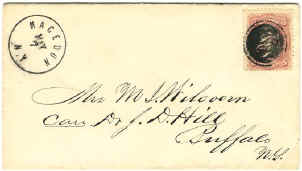 MACEDON
N.Y.
Mrs M. J. Wilcoxen
Care Dr J. D. Hill
Buffalo
N.Y.